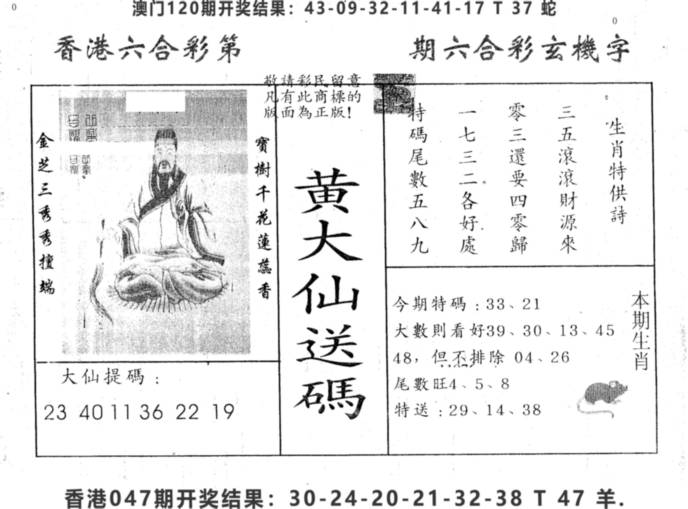 澳门120期开奖结果：43-09-32-11-41-17 T 37 蛇
香港六合彩第
期六合彩玄機字
敬請彩民留意
凡有此商標的
版面為正版！
生肖特供詩
三五滾滾財源來
零三還要四零歸
一七三二各好處
特碼尾數五八九
黄大仙送碼
寳樹千花蓮蕊香
金芝三秀秀擅端
大仙提碼：
23 40 11 36 22 19
本期生肖
今期特碼：33、21
大數則看好39、30、13、45
48，但不排除 04、26
尾數旺4、5、8
特送：29、14、38
香港047期开奖结果：30-24-20-21-32-38 T 47 羊.